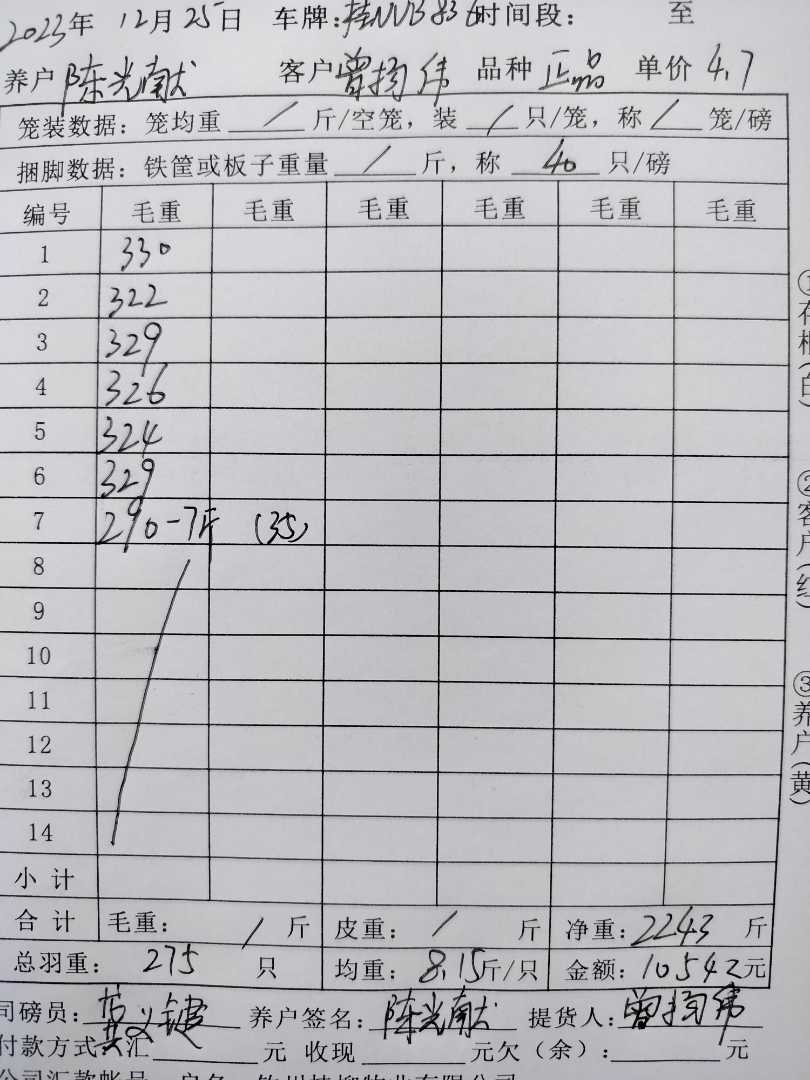 2023年 12月25日 车牌:桂NVB836 时间段: 至
养户 陈光献 客户 曾扬伟 品种 正品 单价 4.7
笼装数据: 笼均重 / 斤/空笼, 装 / 只/笼, 称 / 笼/磅
捆脚数据: 铁筐或板子重量 / 斤, 称 40 只/磅
编号 毛重 毛重 毛重 毛重 毛重 毛重
1 330
2 322
3 329
4 326
5 324
6 329
7 290-7斤 (35)
8
9
10
11
12
13
14
小计
合计 毛重: / 斤 皮重: / 斤 净重: 2243 斤
总羽重: 275 只 均重: 8.15斤/只 金额: 10542元
司磅员: 养户签名: 陈光献 提货人: 曾扬伟
付款方式: 汇 元 收现 元欠(余): 元
①存根(白)
②客户(红)
③养户(黄)